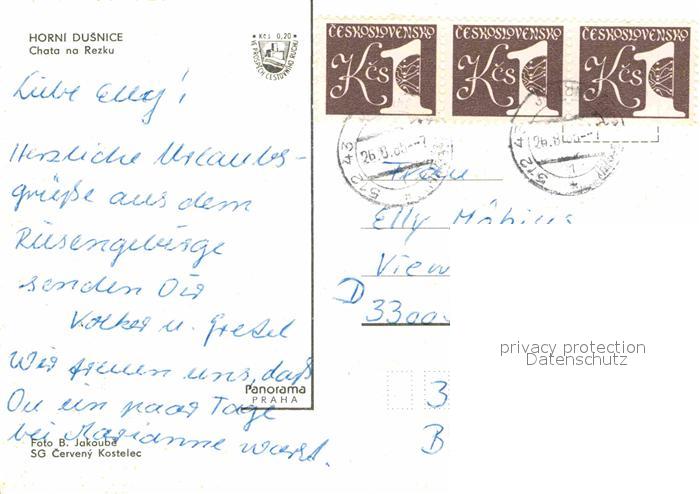 HORNÍ DUŠNICE
Chata na Rezku
Kčs 0,20
VE PROSPĚCH CESTOVNÍHO RUCHU
ČESKOSLOVENSKO
Kčs 1
ČESKOSLOVENSKO
Kčs 1
ČESKOSLOVENSKO
Kčs 1
512 43
26.8.86
512 43
Liebe Elly!
Herzliche Urlaubs-
grüße aus dem
Riesengebirge
senden Dir
Volker u. Gretel
Wir freuen uns, daß
Du ein paar Tage
bei Marianne warst.
Frau
Elly
View
D
3300
privacy protection
Datenschutz
3
B
Panorama
PRAHA
Foto B. Jakoubě
SG Červený Kostelec